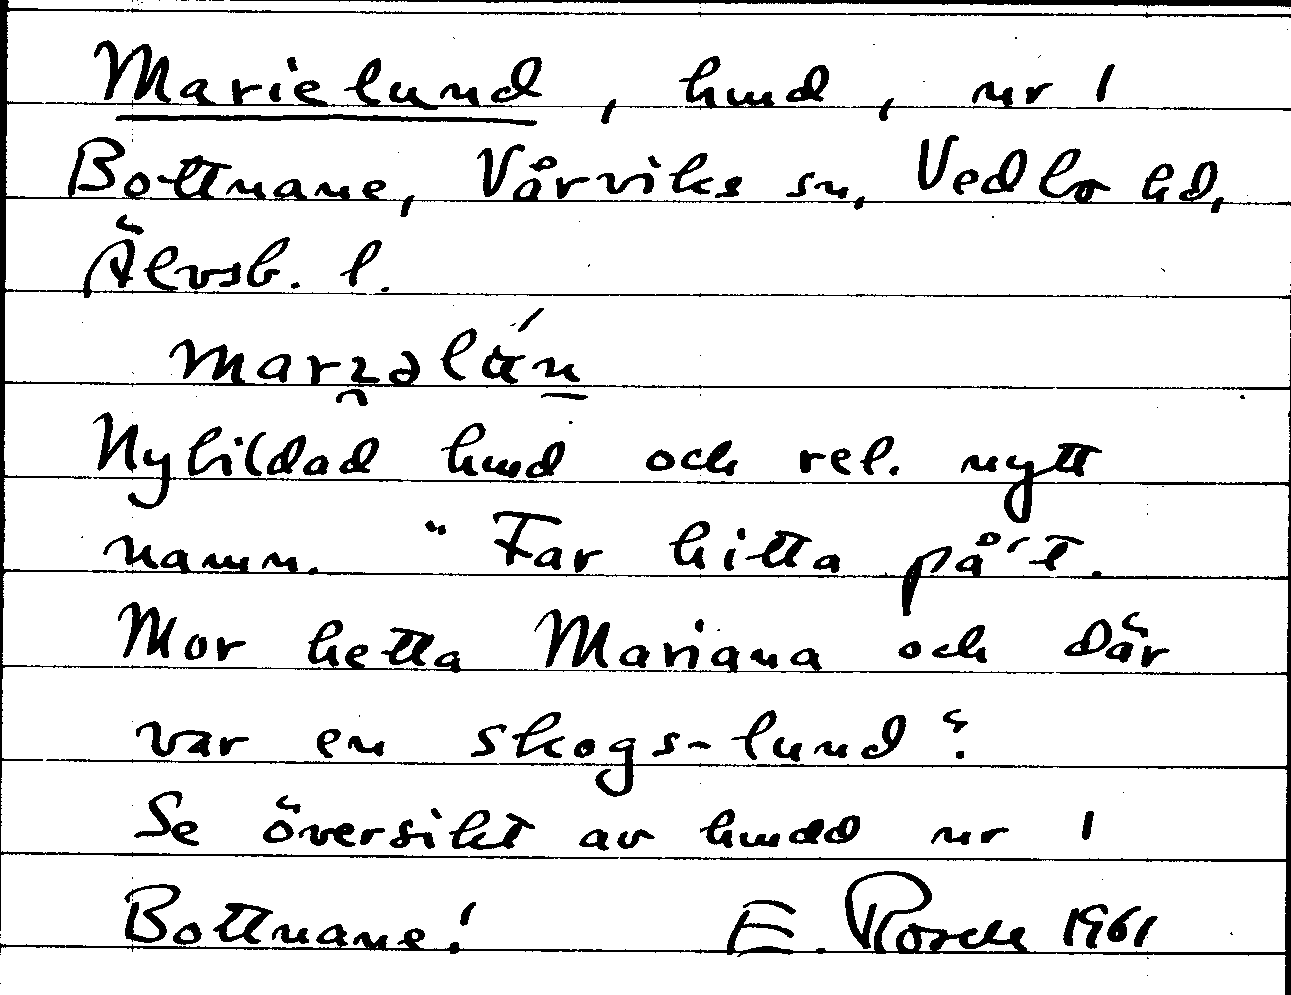 Marielund, hmd, nr 1
Bottnane, Vårviks sn, Vedbo hd,
Älvsb. l.
Nybildad hmd och rel. nytt
namn. "Far hitta på't.
Mor hetta Mariana och där
var en skogs-lund".
Se översikt av hmdd nr 1
Bottnane! E. 1961